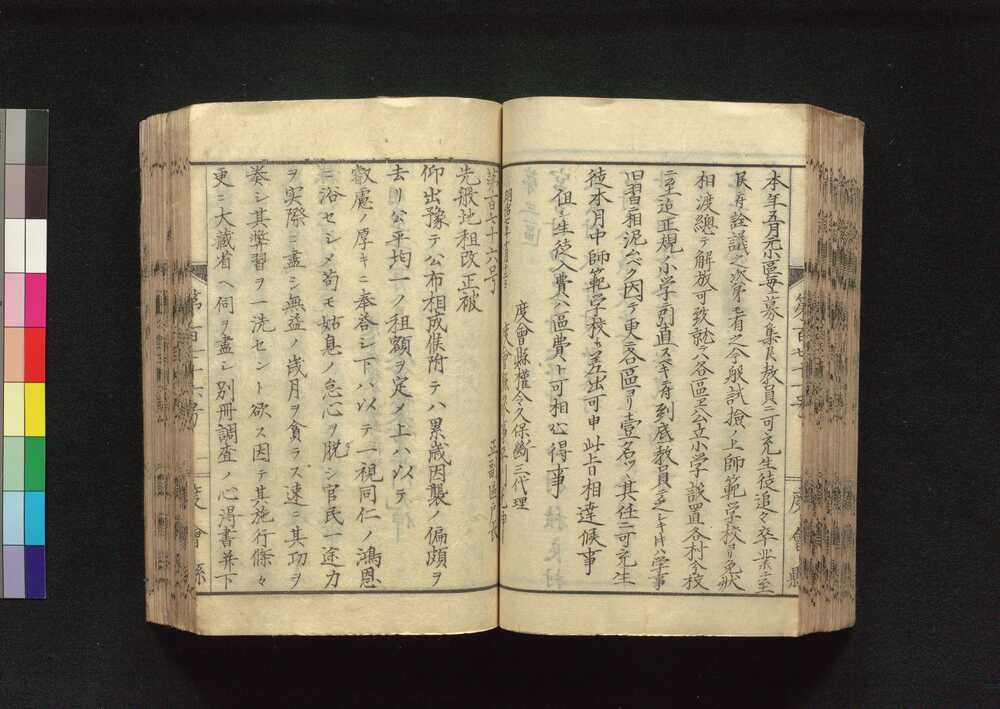 本年五月元小區每ニ募集ノ教員ニ可充生徒追々卒業ニ至
候ニ付詮議之次第モ有之今般試撿ノ上師範学校ヨリ免狀
相渡總テ解放可致就テハ各區ニ公立小学設置各村今校
ニ至迄正規ノ小学ニ引直スベキニ付到底教員乏シキトキハ学事
旧習ニ相泥ムベク因テ更ニ各區ヨリ壹名ツヽ其任ニ可充生
徒本月中師範学校ヘ差出可申此上日相達候事
但シ生徒入費ハ區費ト可相心得事
度會縣權令久保斷三代理
正副區戸長
第一百七十六号
先般地租改正被
仰出豫テ公布相成候附テハ累歳因襲ノ偏頗ヲ
去リ公平均一ノ租額ヲ定メ上ハ以テ
叡慮ノ厚キニ奉答シ下ハ以テ一視同仁ノ鴻恩
ニ浴セシメ苟モ姑息ノ怠心ヲ脱シ官民一途力
ヲ実際ニ盡シ無益ノ歳月ヲ貪ラス速ニ其功ヲ
奏シ其弊習ヲ一洗セント欲ス因テ其施行條々
更ニ大藏省ヘ伺ヲ盡シ別冊調査ノ心得書并下
度會縣